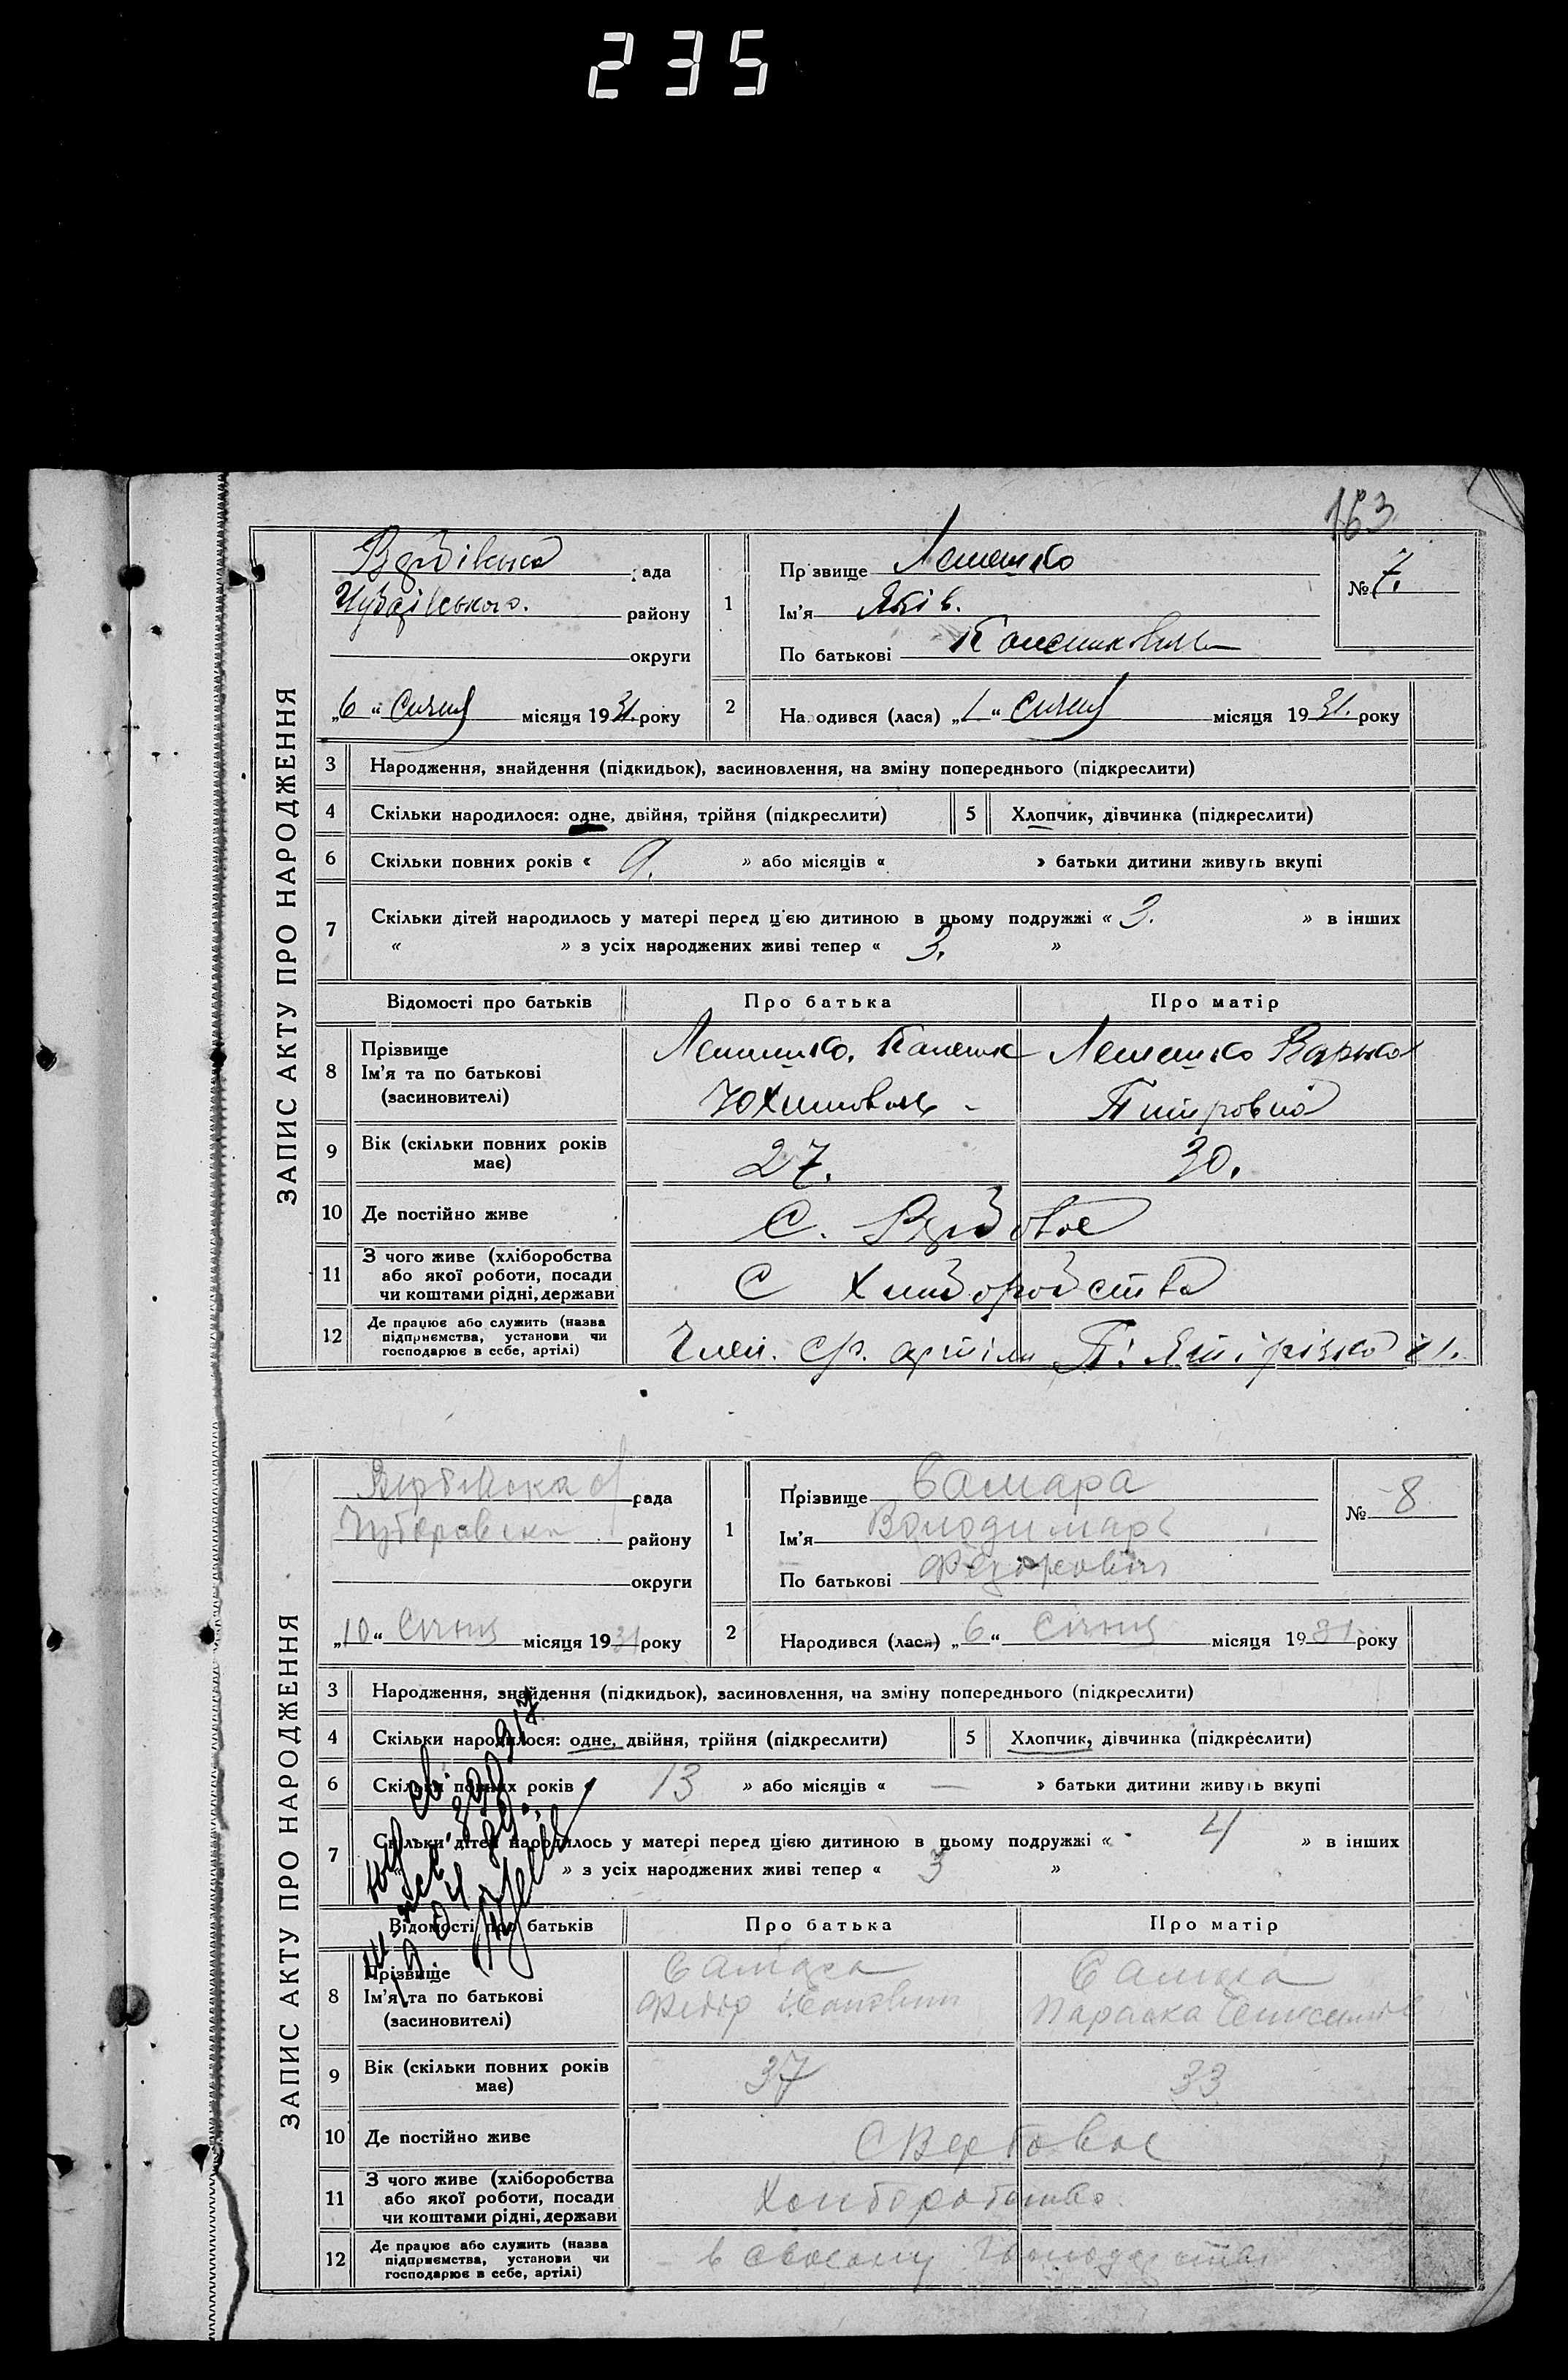 235
163
ЗАПИС АКТУ ПРО НАРОДЖЕННЯ
рада
району
округи
„6“ січня місяця 1931. року
1
Прізвище Лемешко
Ім'я Яків.
По батькові
№ 7.
2
Народився (лася) „1“ січня місяця 1931. року
3 Народження, знайдення (підкидьок), засиновлення, на зміну попереднього (підкреслити)
4 Скільки народилося: одне, двійня, трійня (підкреслити)
5 Хлопчик, дівчинка (підкреслити)
6 Скільки повних років « 9. » або місяців « » батьки дитини живуть вкупі
7 Скільки дітей народилось у матері перед цією дитиною в цьому подружжі « 3. » в інших
« » з усіх народжених живі тепер « 3. »
Відомості про батьків Про батька Про матір
8 Прізвище
Ім'я та по батькові
(засновителі)
Лемешко
Юхимович
Лемешко Варька
Питровна
9 Вік (скільки повних років має) 27. 30.
10 Де постійно живе С.
11 З чого живе (хліборобства
або якої роботи, посади
чи коштами рідні, держави
С
12 Де працює або служить (назва
підприємства, установи чи
господарює в себе, артілі)
Член. с/г. артіли
ЗАПИС АКТУ ПРО НАРОДЖЕННЯ
рада
району
округи
„10“ Січня місяця 1931 року
1
Прізвище Самара
Ім'я Володимарь
По батькові Федорович
№ 8
2
Народився (лася) „6“ Січня місяця 1931 року
3 Народження, знайдення (підкидьок), засиновлення, на зміну попереднього (підкреслити)
4 Скільки народилося: одне, двійня, трійня (підкреслити)
5 Хлопчик, дівчинка (підкреслити)
6 Скільки повних років « 13 » або місяців « — » батьки дитини живуть вкупі
7 Скільки дітей народилось у матері перед цією дитиною в цьому подружжі « 4 » в інших
» з усіх народжених живі тепер « 3 »
Відомості про батьків Про батька Про матір
8 Прізвище
Ім'я та по батькові
(засиновителі)
Самара
Федір Іванович
Самара
Параска
9 Вік (скільки повних років має) 37 33
10 Де постійно живе С Вербовое
11 З чого живе (хліборобства
або якої роботи, посади
чи коштами рідні, держави
12 Де працює або служить (назва
підприємства, установи чи
господарює в себе, артілі)
в своєму господарстві